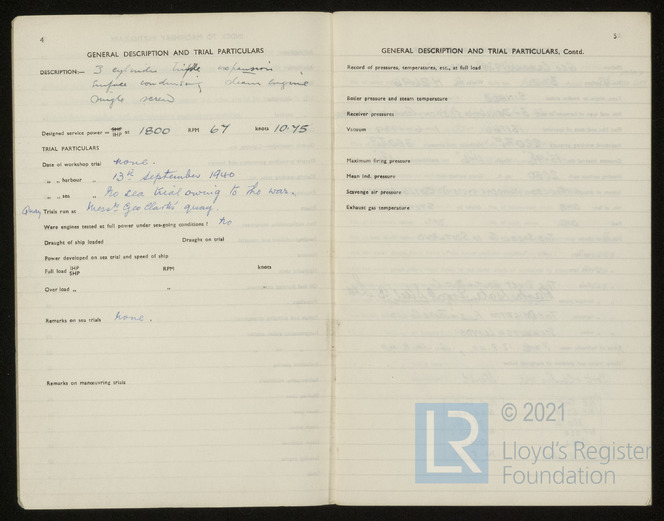 4
GENERAL DESCRIPTION AND TRIAL PARTICULARS
DESCRIPTION:— 3 cylinder triple expansion
surface condensing steam engine
single screw
Designed service power — SHP IHP at 1800 RPM 67 knots 10.75
TRIAL PARTICULARS
Date of workshop trial None.
„ „ harbour „ 13th September 1940
„ „ sea „ No sea trial owing to the war.
Quay Trials run at Messrs Geo Clark's quay.
Were engines tested at full power under sea-going conditions? No
Draught of ship loaded Draught on trial
Power developed on sea trial and speed of ship
Full load IHP SHP RPM knots
Over load „ „ „
Remarks on sea trials None.
Remarks on manœuvring trials
5
GENERAL DESCRIPTION AND TRIAL PARTICULARS, Contd.
Record of pressures, temperatures, etc., at full load
Boiler pressure and steam temperature
Receiver pressures
Vacuum
Maximum firing pressure
Mean ind. pressure
Scavenge air pressure
Exhaust gas temperature
LR
© 2021
Lloyd's Register
Foundation